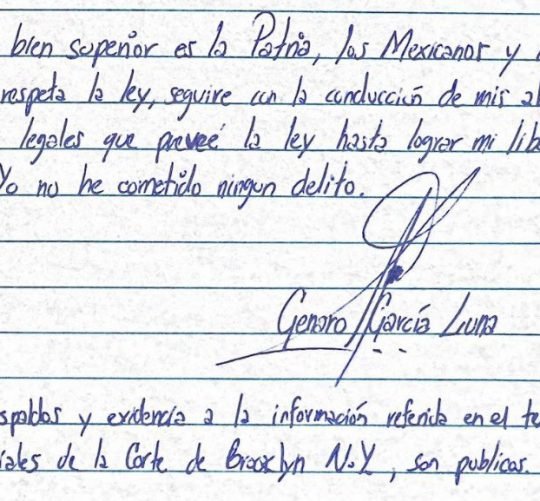 bien superior es la Patria, los Mexicanos y
respeta la ley, seguire con la conducción de mis
legales que preveé la ley hasta lograr mi
Yo no he cometido ningun delito.
Genaro García Luna
y evidencia a la información referida en el
de la Corte de Brooklyn N.Y, son publicas.